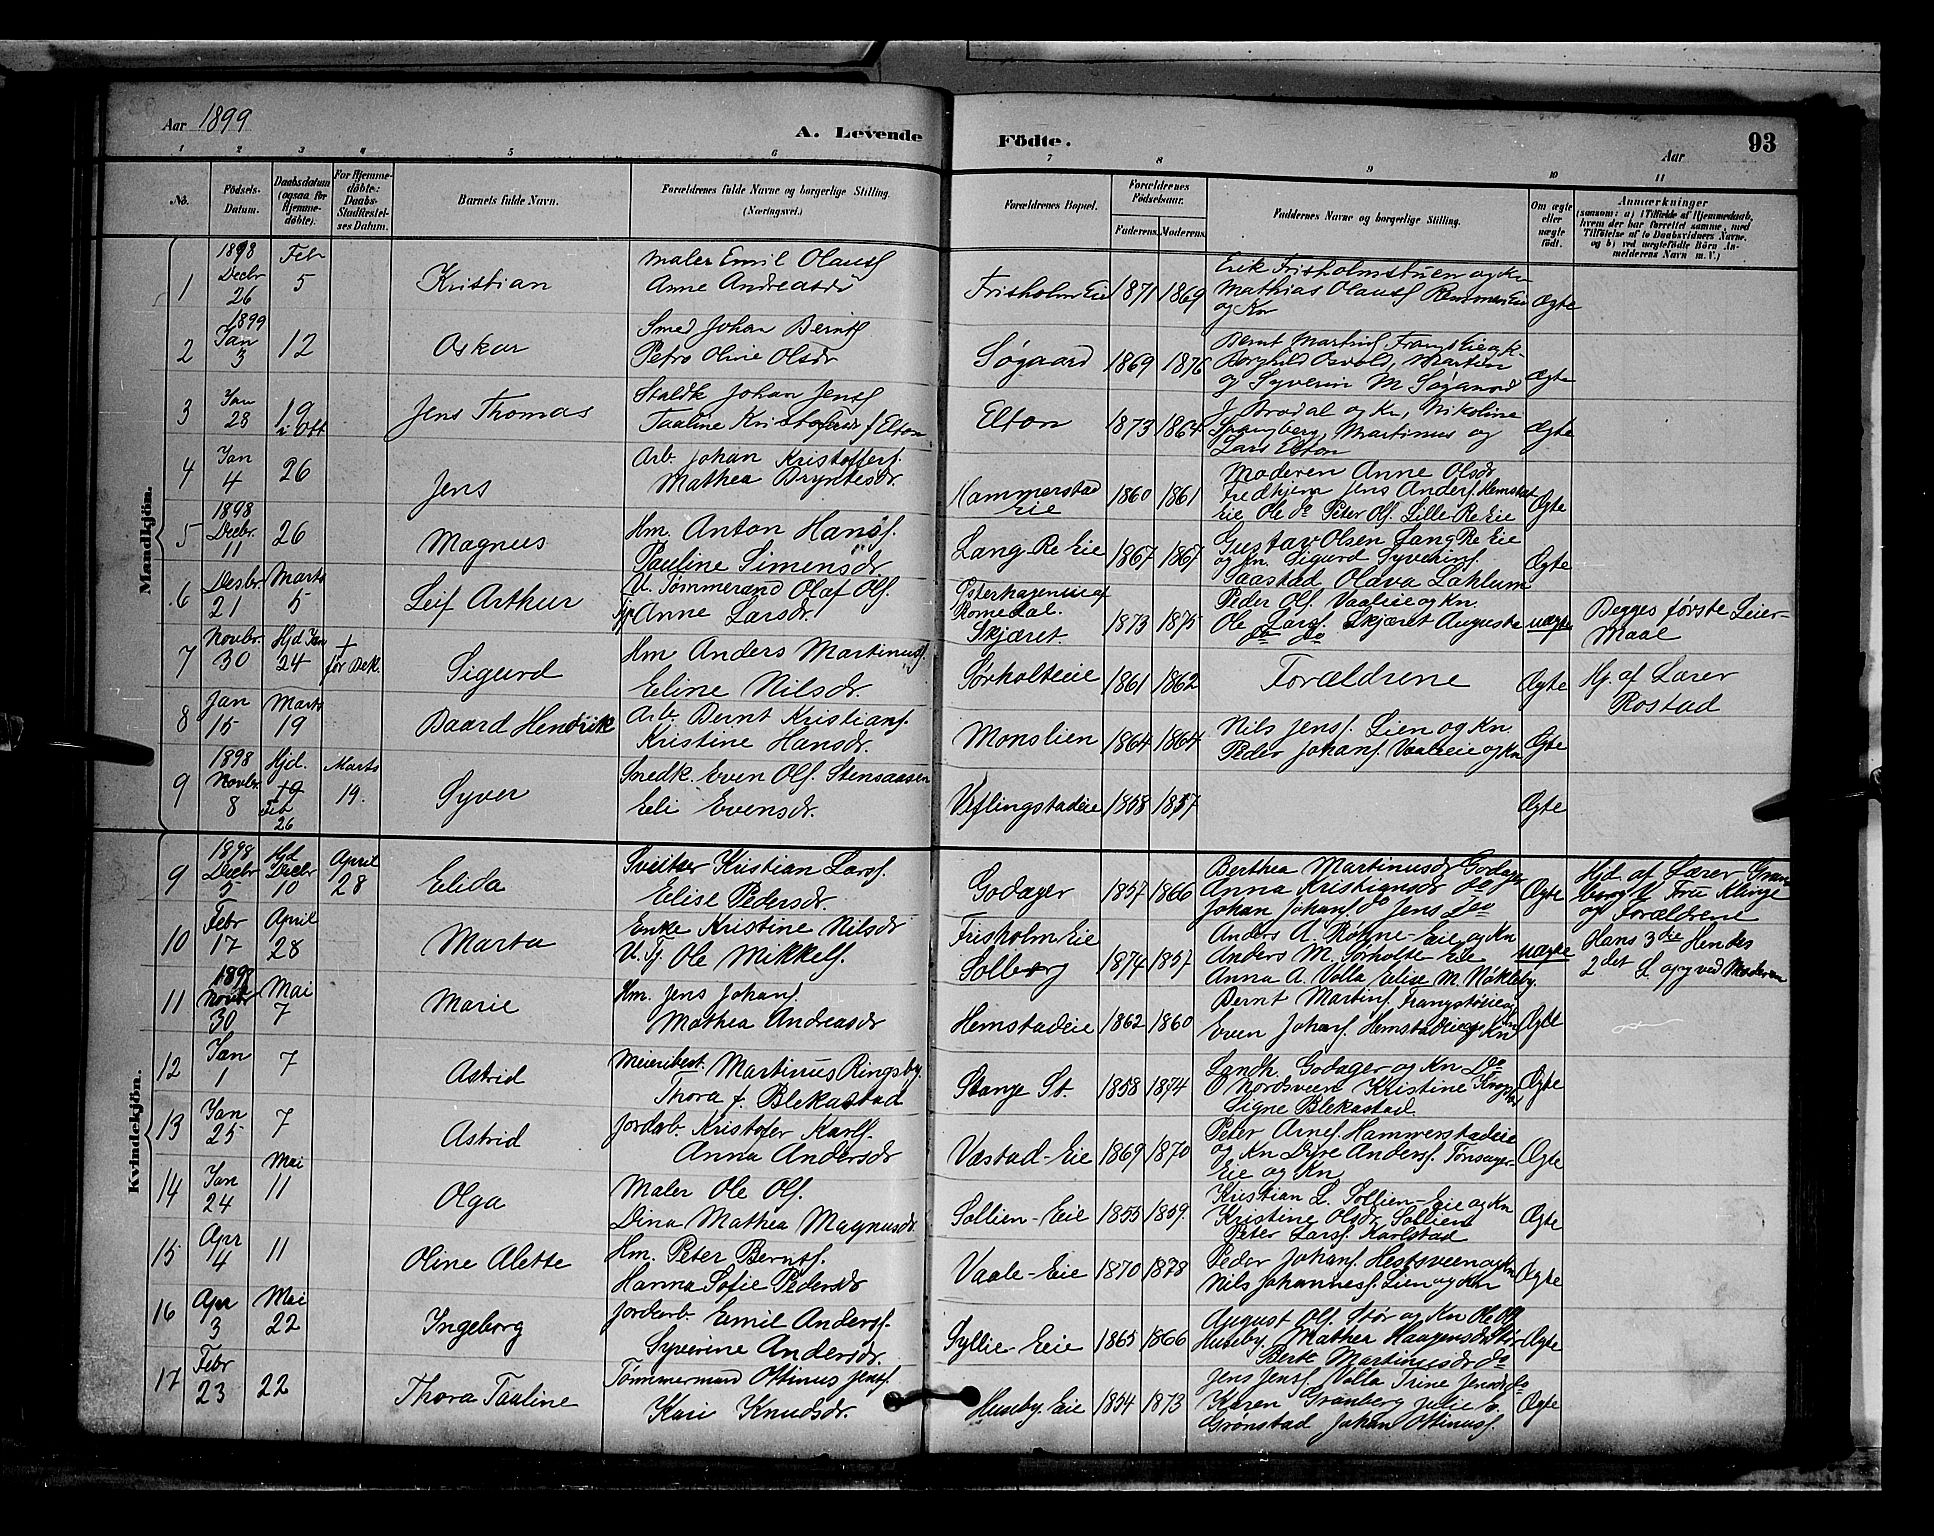 Aar 1899
A. Levende Födte.
93
Aar
1 2 3 4 5 6 7 8 9 10 11
No.
Födsels-Datum.
Daabsdatum (ogsaa for Hjemme-döbte).
For Hjemme-döbte: Daabs-Stadfæstel-ses Datum.
Barnets fulde Navn.
Forældrenes fulde Navne og borgerlige Stilling. (Næringsvei.)
Forældrenes Bopæl.
Forældrenes Födselsaar.
Faderens. Moderens.
Faddernes Navne og borgerlige Stilling.
Om ægte eller uægte födt.
Anmærkninger (saasom: a) i Tilfælde af Hjemmedaab, hvem der har forrettet samme, med Tilföielse af to Daabsvidners Navne, og b) ved uægtefödte Börn An-melderens Navn m. V.)
Mandkjön.
1 1898 Decbr 26 Feb 5 Kristian Maler Emil Olauss Anne Andreasdr Frisholm Eie 1871 1869 Erik Frisholmstuen og Kn Mathias Olauss og Kn Ægte
2 1899 Jan 3 12 Oskar Smed Johan Berntss Petro Oline Olsdr Søgaard 1869 1876 Bernt Martins Borghild Osvold, Martin og Syverin M Søgaard Ægte
3 Jan 28 19 i Ott Jens Thomas Staldk Johan Jenss Taaline f Elton Elton 1873 1864 J. Brodal og Kn, Nikoline Spangberg, Martinus og Lars Elton Ægte
4 Jan 4 26 Jens Arb. Johan Kristoffers. Mathea Bryntesdr. Hammerstad Eie 1860 1861 Moderen Anne Olsdr Jens Anders. Hemstad Eie Ole do Peter Ols. Lille-Re Eie Ægte
5 1898 Decbr. 11 26 Magnus Hm. Anton Hanss. Pauline Simensdr. Lang-Re Eie 1867 1867 Gustav Olsen Lang Re Eie og Kn. Sigurd Syverins. Saastad Olava Lahlum Ægte
6 Desbr. 21 Marts 5 Leif Arthur U. Tømmermand Olaf Ols. Pp Anne Larsdr. Østerhagen eie af Romedal. Skjæret. 1873 1875 Peder Ols. Vaaleie og Kn. Ole Lars. Skjæret Augusta do do uægte Begges første Leier-maal
7 Novbr. 30 Hjd Jan 24 + før Bek. Sigurd Hm Anders Martinuss. Eline Nilsdr. Sørholteie 1861 1862 Forældrene Ægte Hj. af Lærer Rostad
8 Jan 15 Marts 19 Baard Hendrik Arb. Bernt Kristians. Kristine Hansdr. Monslien 1864 1864 Nils Jens. Lien og Kn Peder Johans. Vaaleeie og Kn Ægte
9 1898 Novbr. 8 Hjd. 19 Feb 26 Marts 19. Syver Snedk. Even Ols. Stensaasen Eli Evensdr. Veflingstadeie 1858 1857 Ægte
Kvindekjön.
9 1898 Decbr 5 Hjd Decbr 10 April 28 Elida Sveitser Kristian Larss. Elise Pedersdr. Godager 1857 1866 Berthea Martinusdr Godager Anna Kristiansdr do Johan Johans. do Jens do Ægte Hjd. af Lærer Gran-berg V. Fru Klinge og Forældrene
10 Febr 17 April 28 Marta Enke Kristine Nilsdr U. Tj. Ole Mikkels. Frisholm Eie Solberg 1874 1857 Anders A. Rohne-Eie og Kn Anders M. Sørholte Eie Anna A. Volla Elise M. Nökleby. uægte Hans 3die Hendes 2det L. opg ved Moderen
11 1898 Novbr 30 Mai 7 Marie Hm. Jens Johans. Mathea Andreasdr Hemstadeie 1862 1860 Bernt Martins. Even Johans. Hemstadeie og Kn Ægte
12 Jan 1 7 Astrid Meieribest. Martinus Ringsby. Thora f. Blekastad Stange St. 1858 1874 Landh. Godager og Kn Do O Nordsveen Kristine Signe Blekastad Ægte
13 Jan 25 7 Astrid Jordarb. Kristofer Karls. Anna Andersdr Væstad-Eie 1869 1870 Peter Arnes. Hammerstadeie og Kn Dyre Anderss. Tønsager-Eie og Kn Ægte
14 Jan 24 Mai 11 Olga Maler Ole Ols. Dina Mathea Magnusdr Sollien-Eie 1855 1859. Kristian L. Sollien-Eie og Kn Kristine Olsdr Sollien Peter Lars. Karlstad Ægte
15 Apr 4 11 Oline Alette Hm. Peter Bernts. Hanna Sofie Pedersdr Vaale-Eie 1870 1878 Peder Johans. Hestsveen og Kn Nils Johanness. Lien og Kn Ægte
16 Apr 3 Mai 22 Ingeborg Jordarb. Emil Anderss. Syverine Andersdr. Syllie-Eie 1865 1866 August Ols. Stør og Kn Ole Ols Huseby Mathea Haagensdr Stør Berte Martinusdr do Ægte
17 Febr 23 22 Thora Taaline Tømmermand Ottinus Jenss. Kari Knudsdr. Huseby. Eie 1854 1873 Jens Jens. Volla Trine Jensdr do Karen Granberg Julie E. Grønstad Johan Ottinuss. Ægte